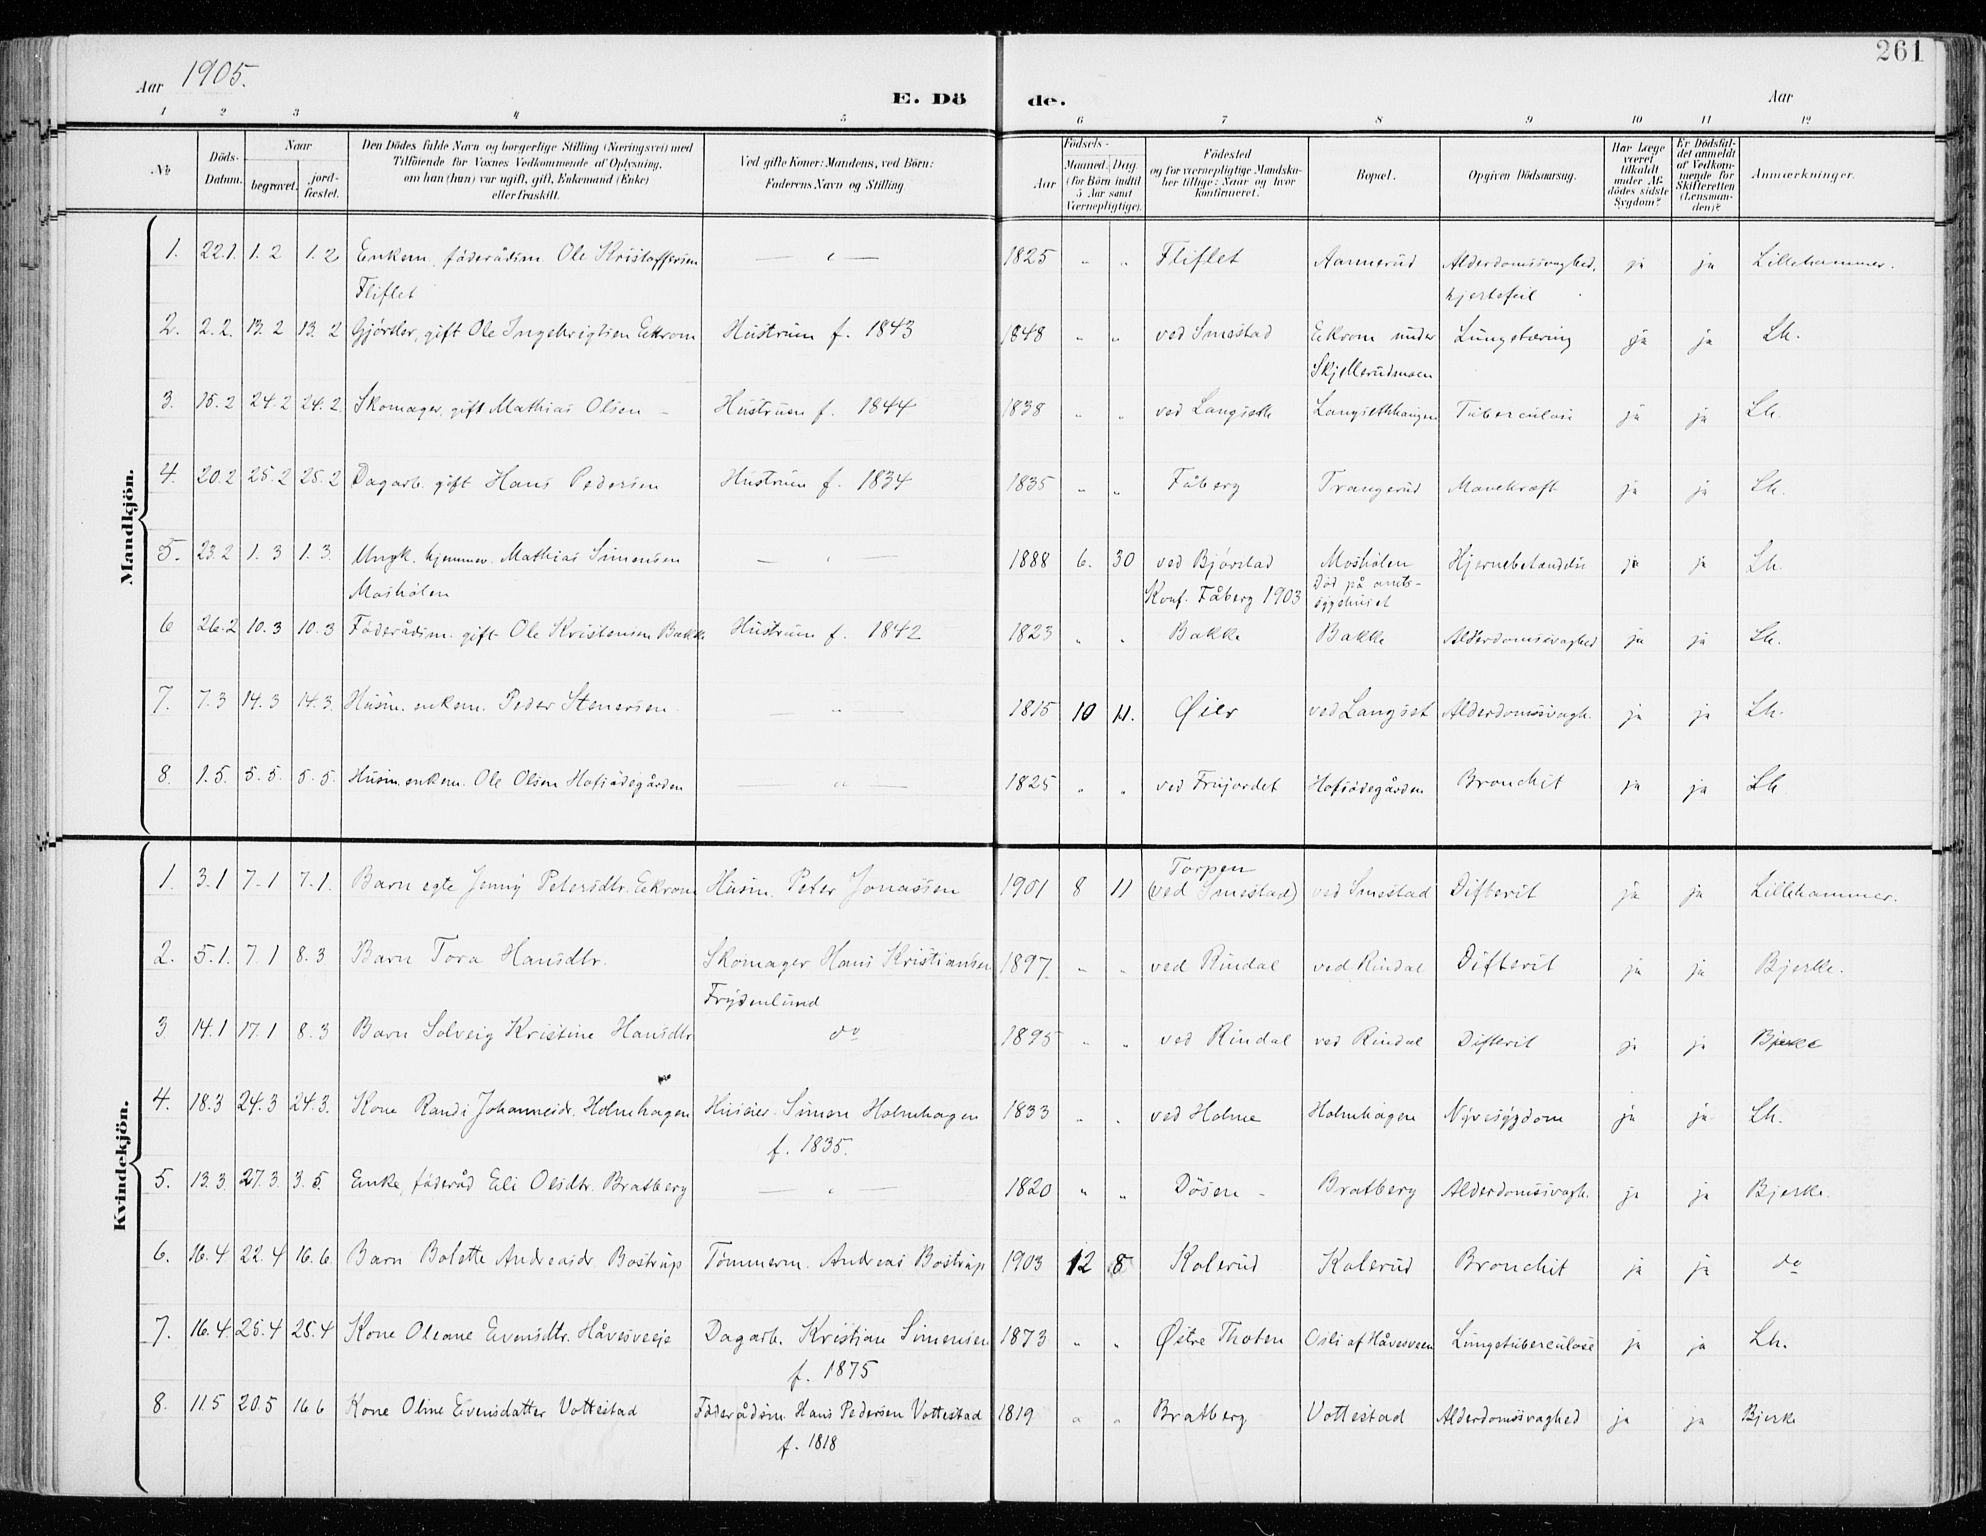 261
Aar 1905.
E. Dö de.
Aar
1 2 3 4 5 6 7 8 9 10 11 12
No
Döds-Datum.
Naar
begravet.
jord-fæstet.
Den Dödes fulde Navn og borgerlige Stilling (Næringsvei) med
Tilföiende för Voxnes Vedkommende af Oplysning,
om han (hun) var ugift, gift, Enkemand (Enke)
eller fraskilt.
Ved gifte Koner: Mandens, ved Börn:
Faderens Navn og Stilling.
Födsels-
Aar
Maaned. Dag
(for Börn indtil
5 Aar samt
Værnepligtige).
Födested
og for værnepligtige Mandska-
ber tillige: Naar og hvor
konfirmeret.
Bopæl.
Opgiven Dödsaarsag.
Har Læge
været
tilkaldt
under Af-
dödes sidste
Sygdom?
Er Dödsfal-
det anmeldt
af Vedkom-
mende for
Skifteretten
(Lensman-
den)?
Anmærkninger.
Mandkjön.
1. 22.1. 1.2 1.2 Enkem. föderådsm Ole Kristoffersen — " — 1825 " " Fliflet Aannerud Alderdomssvaghed, ja ja Lillehammer.
Fliflet hjertefeil
2. 2.2. 13.2 13.2 Gjørtler, gift Ole Ingebrigtsen Eekrom Hustruen f. 1843 1848 " " ved Smestad Eekrom under Lungetæring ja ja Lh.
Skjellerudmoen
3. 15.2 24.2 24.2. Skomager, gift Mathias Olsen – Hustruen f. 1844 1838 " " ved Langseth Langsethhaugen Tuberculose ja ja Lh.
4. 20.2 25.2 25.2 Dagarb. gift Hans Pedersen Hustruen f. 1834 1835 " " Fåberg Trangerud Mavekræft ja ja Lh.
5. 23.2 1.3 1.3. Ungk. hjemmev. Mathias Simensen — " — 1888 6. 30 ved Bjørstad Mosholen Hjernebetændelse ja ja Lh.
Mosholen Konf. Fåberg 1903 Död på amts-
sygehuset
6 26.2 10.3 10.3 Föderådsm. gift Ole Kristensen Bakke Hustruen f. 1842 1823 " " Bakke Bakke Alderdomssvaghed ja ja Lh.
7. 7.3 14.3 14.3. Husm. enkem. Peder Stenersen — " — 1815 10 11. Øier ved Langset Alderdomssvagh. ja ja Lh.
8. 1.5. 5.5. 5.5. Husm. enkem. Ole Olsen Hofsödegården — " — 1825 " " ved Frujordet Hofsödegården Bronchit ja ja Lh
Kvindekjön.
1. 3.1 7.1 7.1. Barn egte Jenny Petersdtr. Eekrom Husm. Peter Jonassen 1901 8 11 Torpen (ved Smestad) ved Smestad Difterit ja ja Lillehammer.
2. 5.1. 7.1 8.3 Barn Tora Hansdtr. Skomager Hans Kristiansen 1897. " " ved Rindal ved Rindal Difterit ja ja Bjerke.
Frydenlund
3 14.1 17.1 8.3 Barn Solveig Kristine Hansdtr do 1895 " " ved Rindal ved Rindal Difterit ja ja Bjerke
4. 18.3 24.3 24.3. Kone Randi Johannesdr. Holmhagen Huseier Simon Holmhagen 1833 " " ved Holme Holmhagen Nyresygdom ja ja Lh.
f. 1835.
5. 13.3. 27.3. 3.5. Enke, föderåd Eli Olsdtr. Bratberg — " — 1820 " " Dösen – Bratberg Alderdomssvagh. ja ja Bjerke.
6. 16.4 22.4 16.6. Barn Bolette Andreasdr Bostrup Tömmerm. Andreas Bostrup 1903 12 8 Kolerud Kolerud Bronchit ja ja do
7. 16.4. 25.4 25.4 Kone Oleane Evensdtr. Håvesveeje Dagarb. Kristian Simensen 1873 " " Østre Thoten Osli af Håvesveen Lungetuberculose ja ja Lh.
f. 1875
8. 11.5 20.5 16.6 Kone Oline Evensdatter Vottestad Föderådsm. Hans Pedersen Vottestad 1819 " " Bratberg Vottestad Alderdomssvaghed ja ja Bjerke
f. 1818